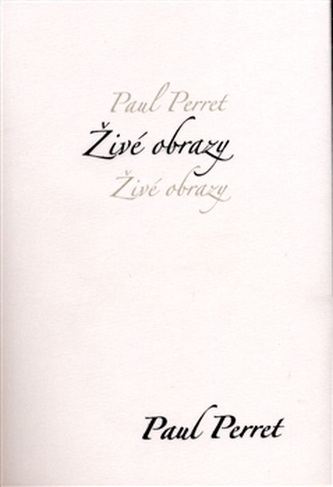 Paul Perret
Živé obrazy
Živé obrazy
Paul Perret